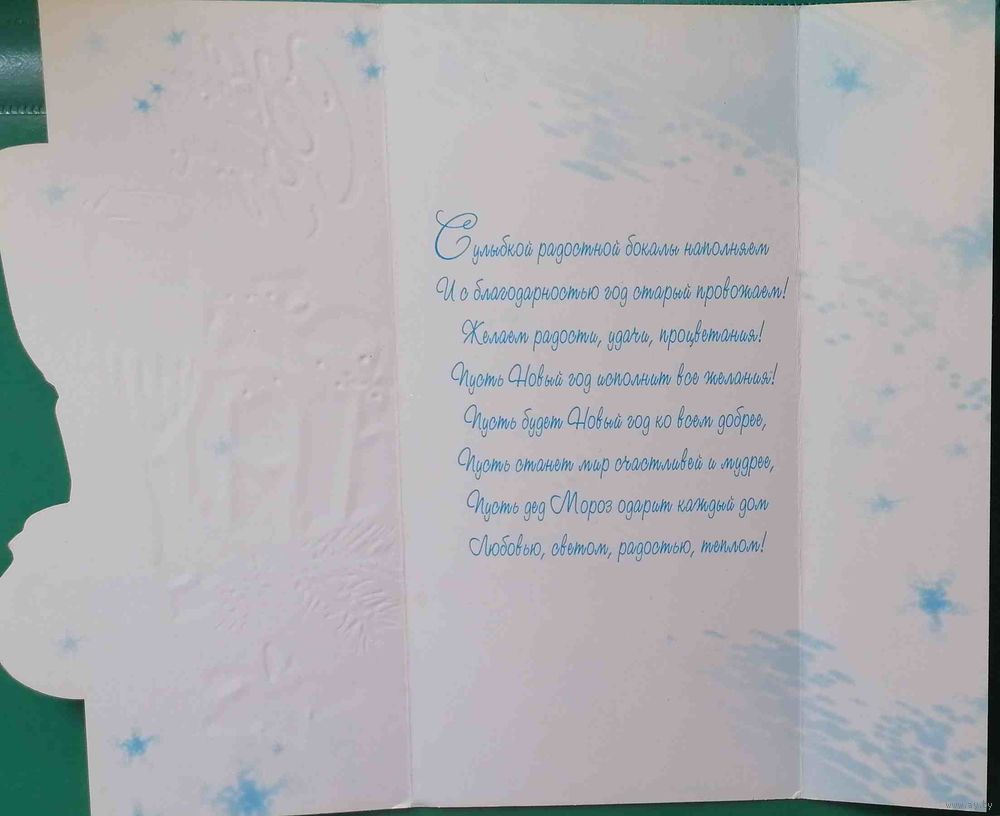 С улыбкой радостной бокалы наполняем
И с благодарностью год старый провожаем!
Желаем радости, удачи, процветания!
Пусть Новый год исполнит все желания!
Пусть будет Новый год ко всем добрее,
Пусть станет мир счастливей и мудрее,
Пусть дед Мороз одарит каждый дом
Любовью, светом, радостью, теплом!
www.ay.by